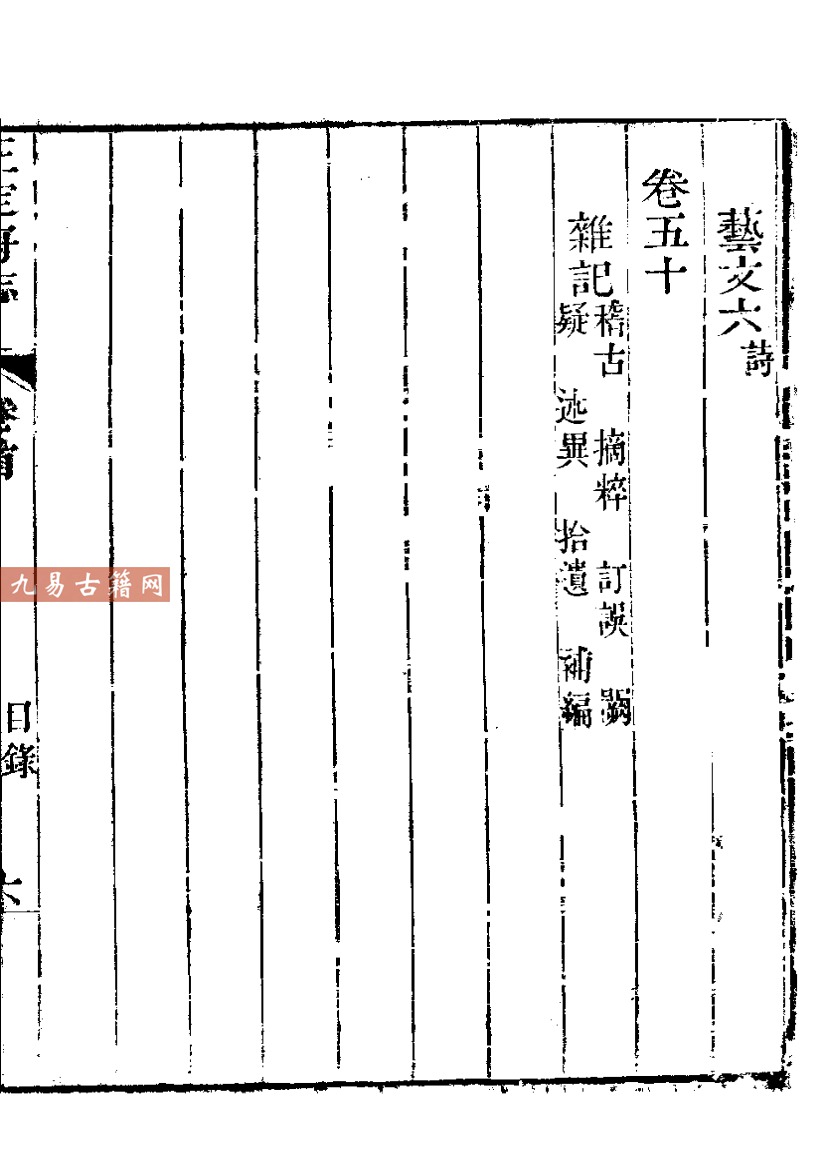 藝文六詩
卷五十
雜記稽古 摘粹 訂誤 闕
疑 述異 拾遺 補編
正定府志 卷首 目錄 六
九易古籍网